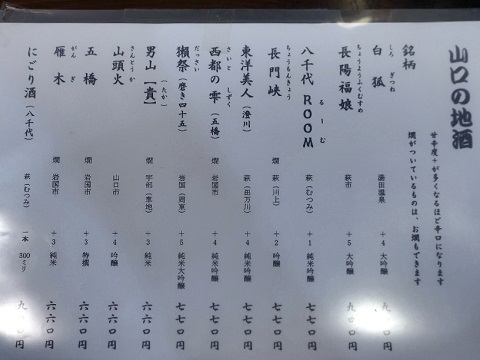 山口の地酒
甘辛度＋が多くなるほど辛口になります
燗がついているものは、お燗もできます
銘柄
白狐 しろぎつね 湯田温泉 ＋4 大吟醸 九〇〇円
長陽福娘 ちょうようふくむすめ 萩市 ＋5 大吟醸 九〇〇円
八千代 ROOM るーむ 萩（むつみ） ＋1 純米吟醸 七七〇円
長門峡 ちょうもんきょう 燗 萩（川上） ＋2 吟醸 七七〇円
東洋美人（澄川） 萩（田万川） ＋4 純米吟醸 七七〇円
西都の雫（五橋） さいと しずく 燗 岩国市 ＋4 純米吟醸 七七〇円
獺祭（磨き四十五） だっさい 岩国（周東） ＋5 純米大吟醸 七七〇円
男山【貴】（たか） 燗 宇部 ＋3 純米 六六〇円
山頭火 さんとうか 山口市 ＋4 吟醸 六六〇円
五橋 燗 岩国市 ＋3 六六〇円
雁木 がんぎ 燗 岩国市 ＋3 純米 六六〇円
にごり酒（八千代） 萩（むつみ） 一本 300ミリ 九〇〇円